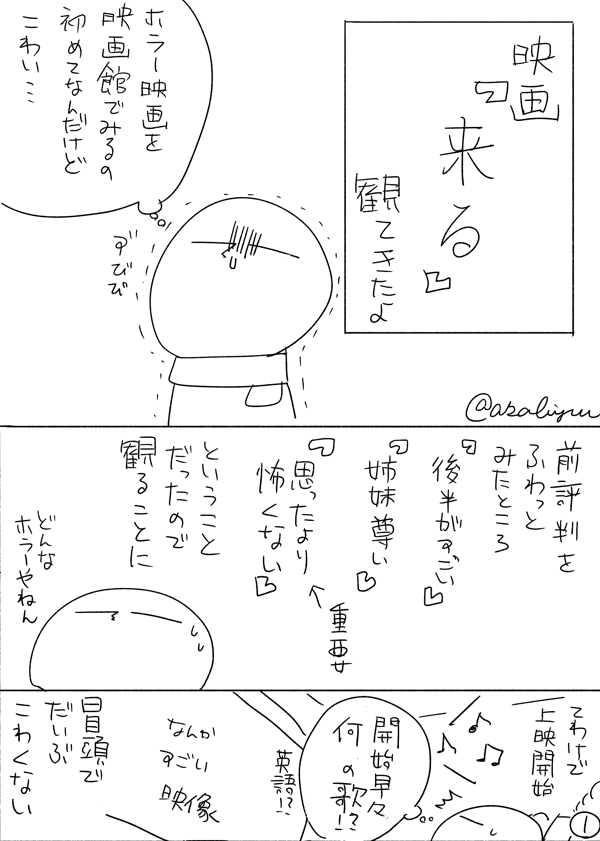 映画
『来る』
観てきたよ
ホラー映画を
映画館でみるの
初めてなんだけど
こわい…
ずびび
@asaliyuu
前評判を
ふわっと
みたところ
『後半がすごい』
『姉妹尊い』
『思ったより
怖くない』
←重要
ということ
だったので
観ることに
どんな
ホラーやねん
てわけで
上映開始
開始早々
何の歌!?
英語!?
なんか
すごい
映像
冒頭で
だいぶ
こわくない
1